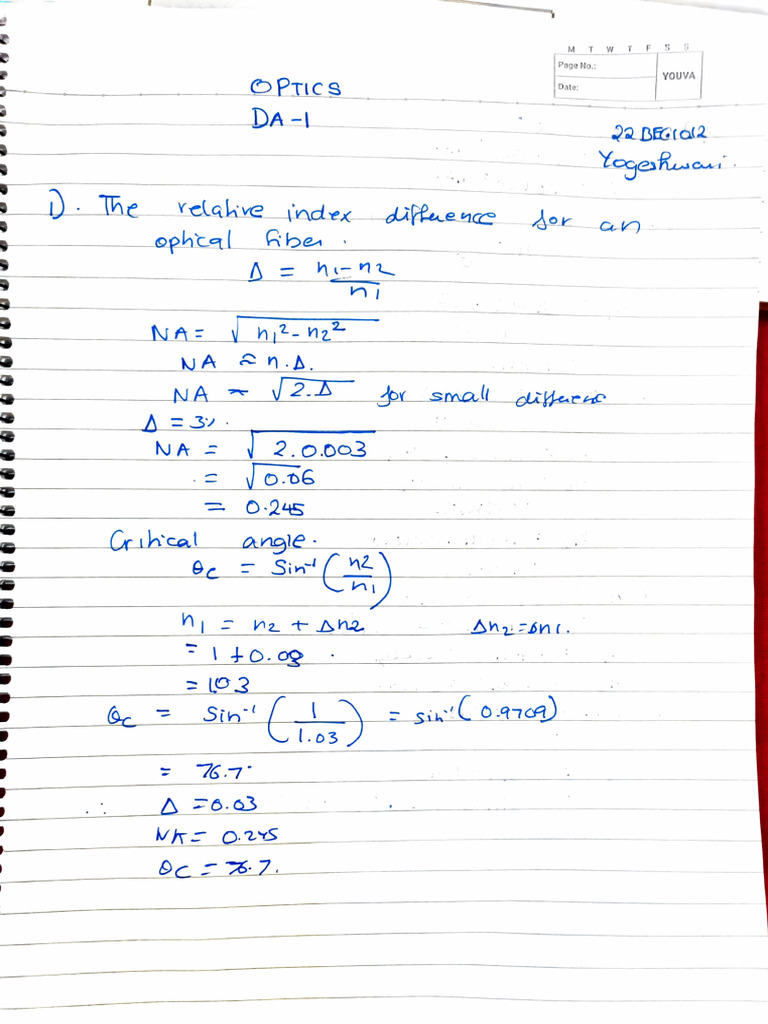 M T W T F S S
Page No.:
YOUVA
Date:
OPTICS
DA-1
22BEC1012
Yogeshwari.
1). The relative index difference for an
optical fiber.
Δ = n1-n2 / n1
NA = √n1²-n2²
NA ≈ n.Δ.
NA ≈ √2.Δ for small difference
Δ = 3%.
NA = √2.0.003
= √0.06
= 0.245
Critical angle.
θc = Sin⁻¹(n2/n1)
n1 = n2 + Δn2 Δn2=Δn1.
= 1+0.03
= 1.03
θc = Sin⁻¹(1/1.03) = sin⁻¹(0.9709)
= 76.7°
∴ Δ = 0.03
NA = 0.245
θc = 76.7.